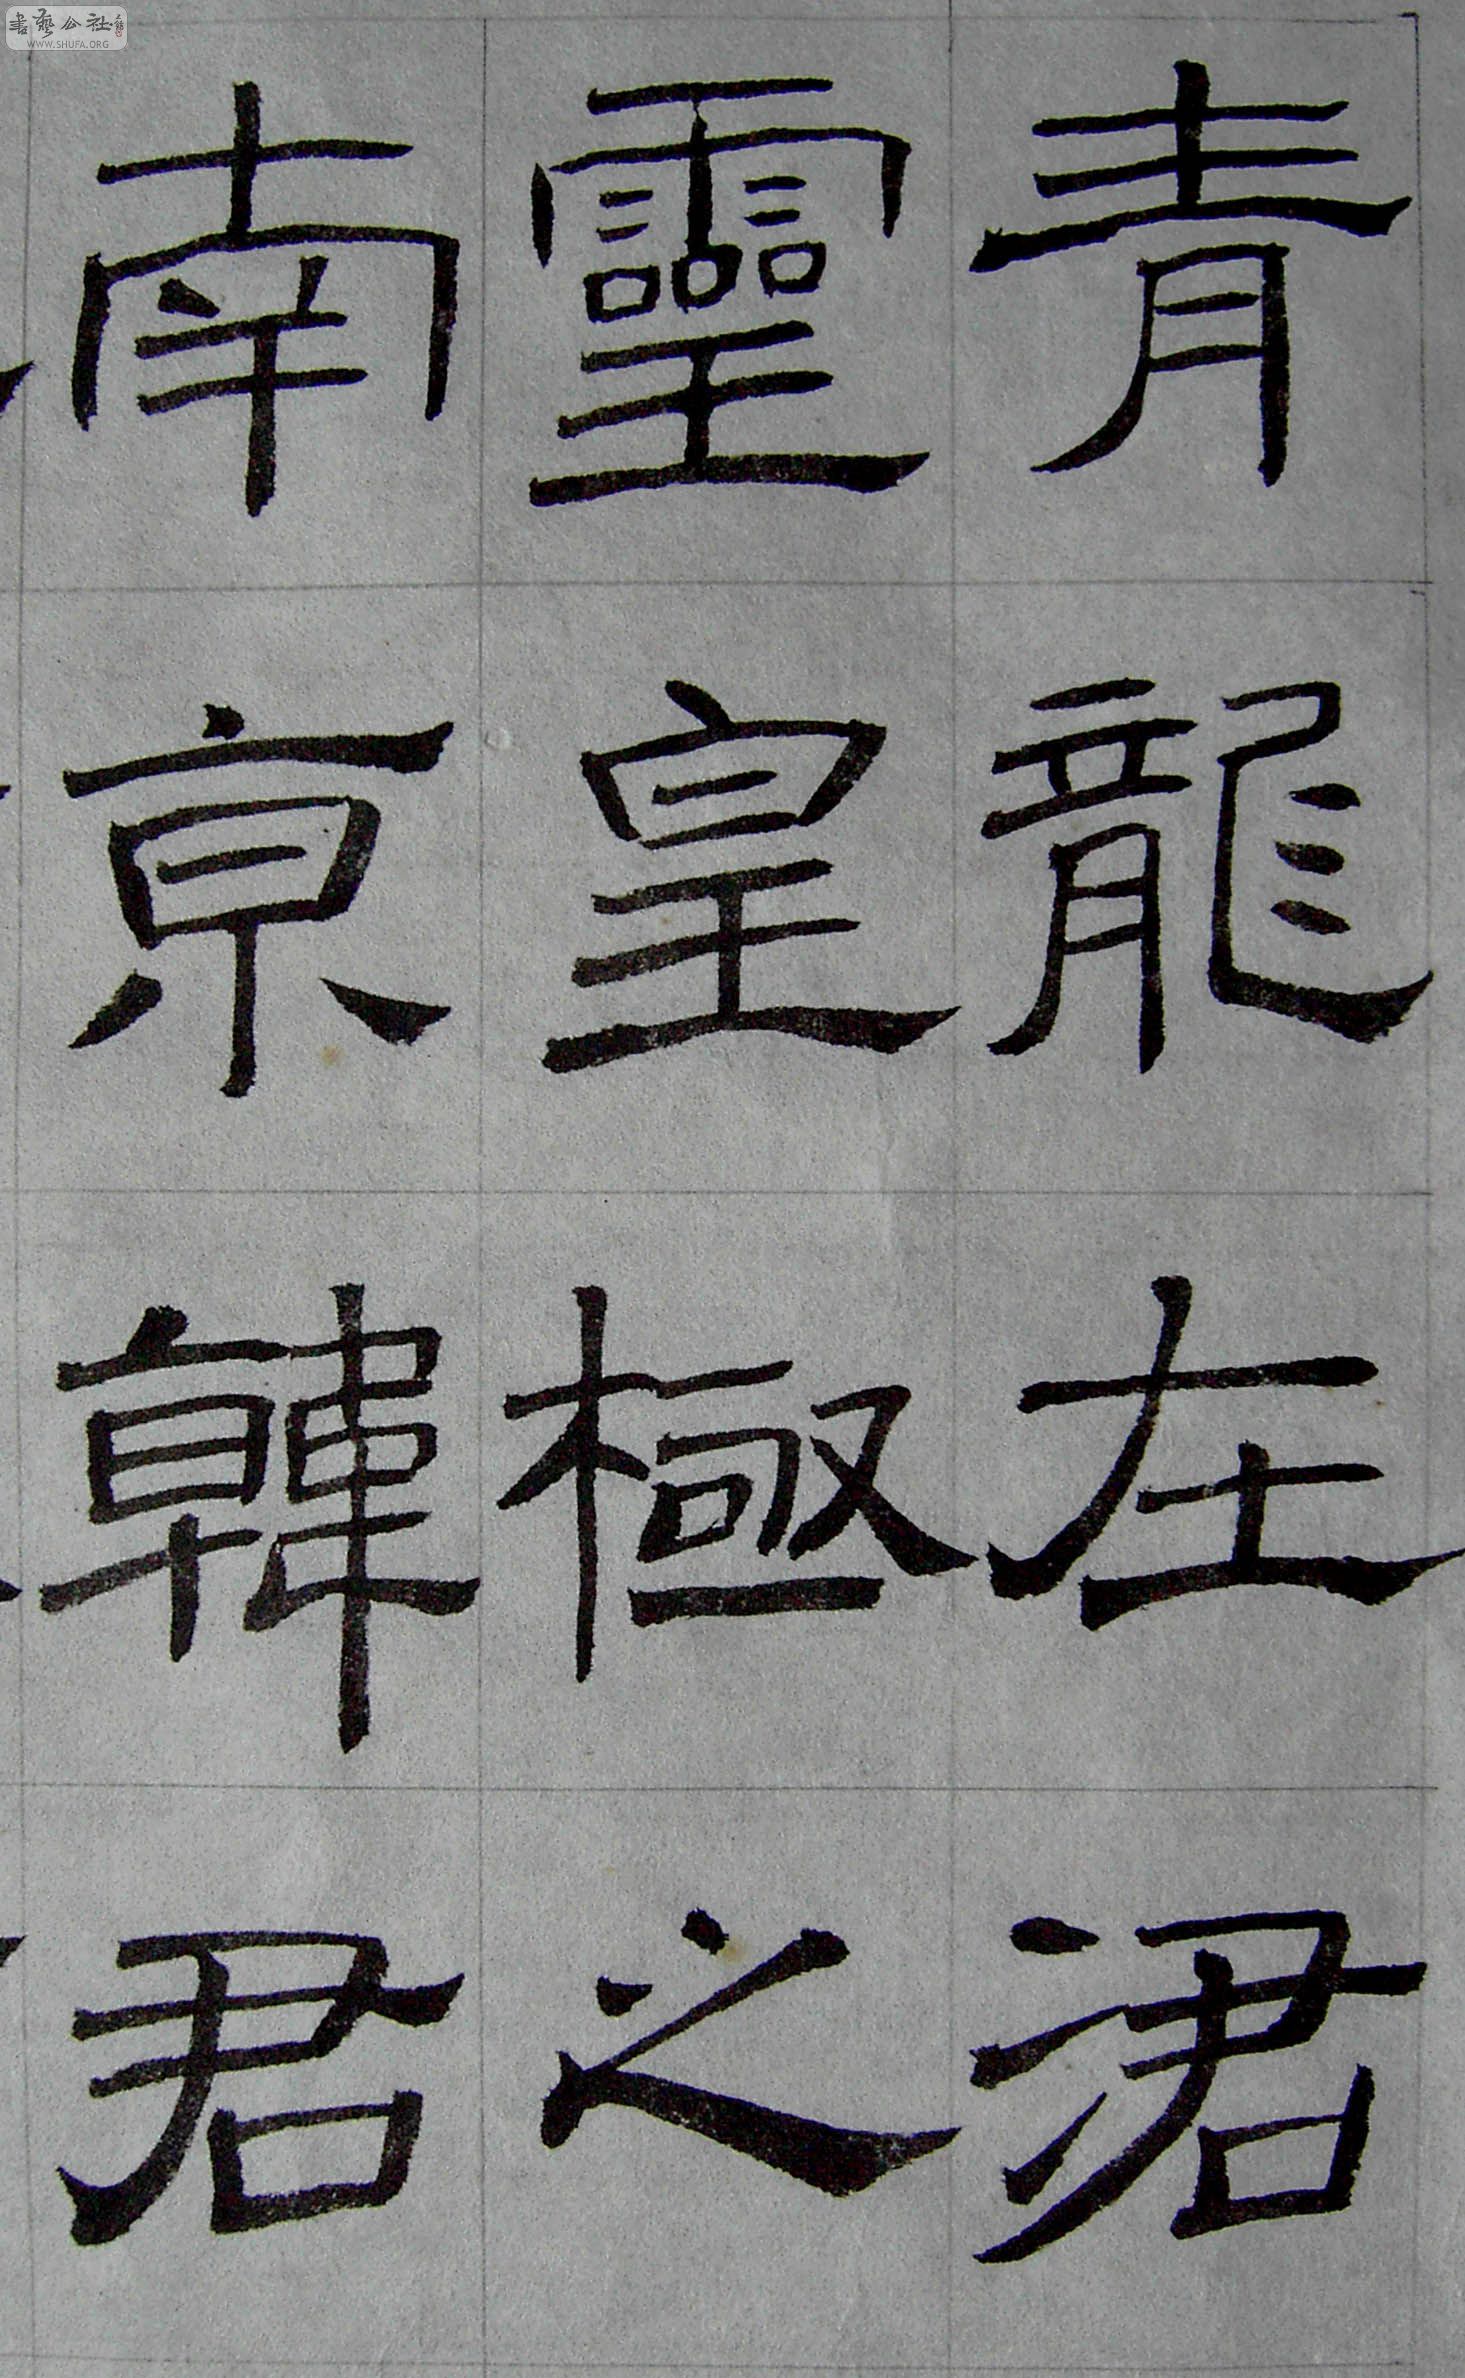 書藝公社
WWW.SHUFA.ORG
青龍在涒
靈皇極之
南京韓君